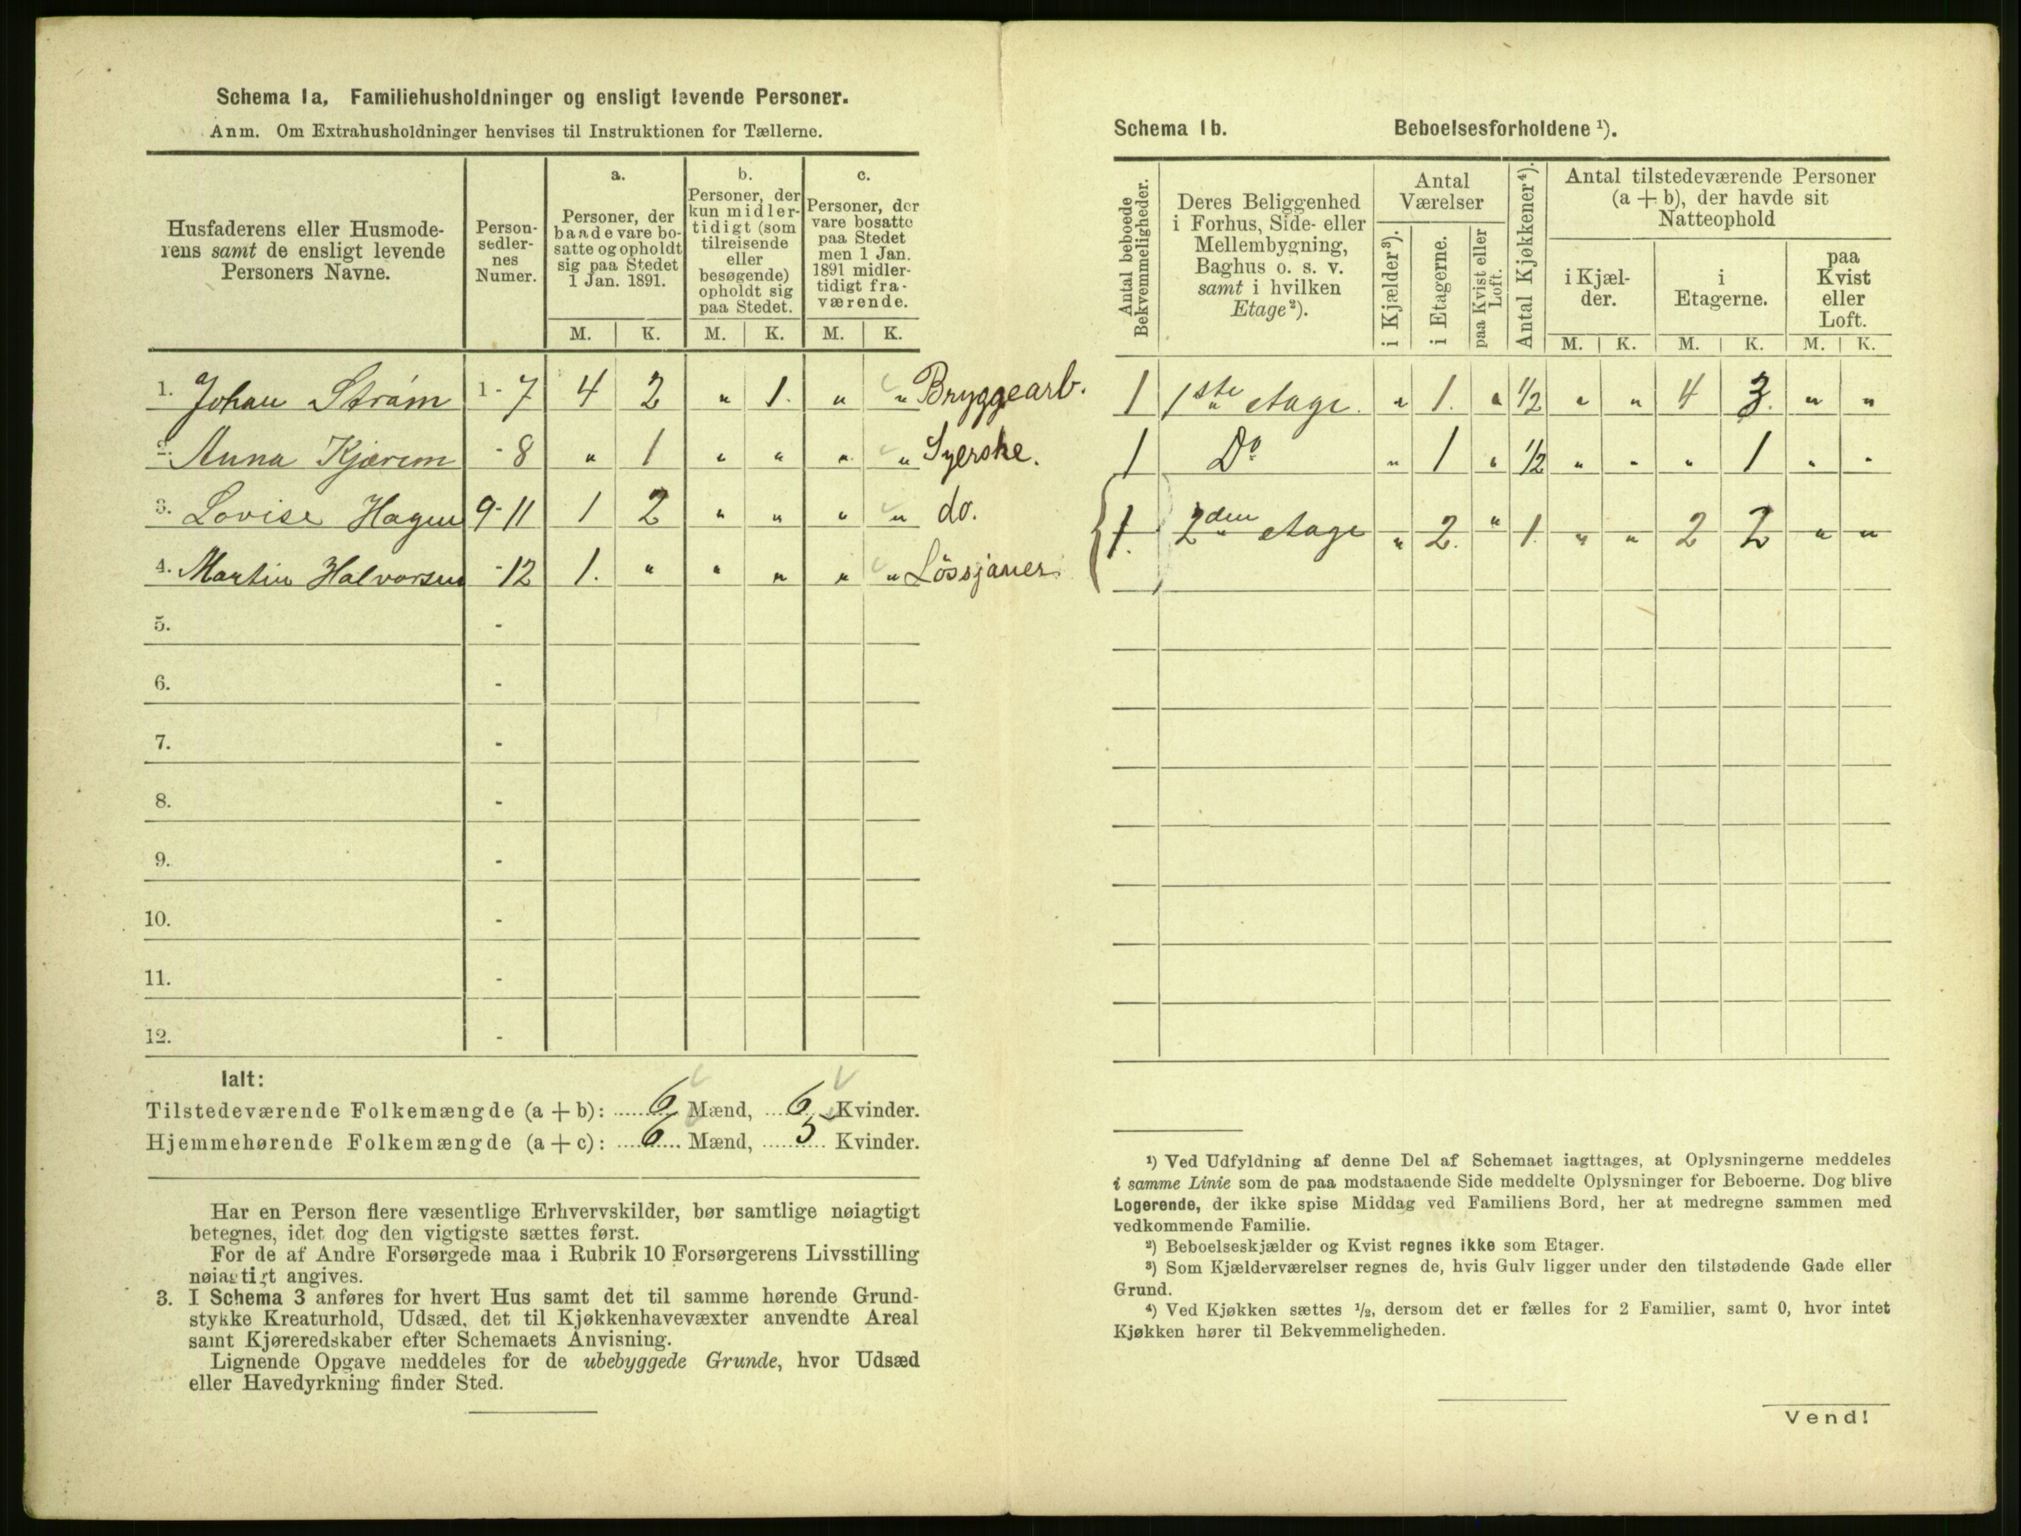 Schema 1a, Familiehusholdninger og ensligt levende Personer.
Anm. Om Extrahusholdninger henvises til Instruktionen for Tællerne.
Husfaderens eller Husmode-
rens samt de ensligt levende
Personers Navne.
Person-
sedler-
nes
Numer.
a.
Personer, der
baade vare bo-
satte og opholdt
sig paa Stedet
1 Jan. 1891.
b.
Personer, der
kun midler-
tidigt (som
tilreisende
eller
besøgende)
opholdt sig
paa Stedet.
c.
Personer, der
vare bosatte
paa Stedet
men 1 Jan.
1891 midler-
tidigt fra-
værende.
M. K. M. K. M. K.
1. Johan Strøm 1-7 4 2 " 1. " " Bryggearb.
2. Anna Kjærem -8 " 1 " " " " Syerske.
3. Lovise Hagen 9-11 1 2 " " " " do.
4. Martin Halvorsen -12 1. " " " " " Løssjauer.
5. -
6. -
7. -
8. -
9. -
10. -
11. -
12. -
Ialt:
Tilstedeværende Folkemængde (a+b): 6 Mænd, 6 Kvinder.
Hjemmehørende Folkemængde (a+c): 6 Mænd, 5 Kvinder.
Har en Person flere væsentlige Erhvervskilder, bør samtlige nøiagtigt
betegnes, idet dog den vigtigste sættes først.
For de af Andre Forsørgede maa i Rubrik 10 Forsørgerens Livsstilling
nøiagtigt angives.
3. I Schema 3 anføres for hvert Hus samt det til samme hørende Grund-
stykke Kreaturhold, Udsæd, det til Kjøkkenhavevæxter anvendte Areal
samt Kjøreredskaber efter Schemaets Anvisning.
Lignende Opgave meddeles for de ubebyggede Grunde, hvor Udsæd
eller Havedyrkning finder Sted.
Schema 1b. Beboelsesforholdene ¹).
Antal beboede
Bekvemmeligheder.
Deres Beliggenhed
i Forhus, Side- eller
Mellembygning,
Baghus o. s. v.
samt i hvilken
Etage²).
Antal
Værelser
i Kjælder³).
i Etagerne.
paa Kvist eller
Loft.
Antal Kjøkkener⁴).
Antal tilstedeværende Personer
(a + b), der havde sit
Natteophold
i Kjæl-
der.
i
Etagerne.
paa
Kvist
eller
Loft.
M. K. M. K. M. K.
1 1ste etage. " 1. " 1/2 " " 4 3. " "
1 Do " 1 " 1/2 " " " 1 " "
1. 2den etage " 2. " 1. " " 2 2 " "
¹) Ved Udfyldning af denne Del af Schemaet iagttages, at Oplysningerne meddeles
i samme Linie som de paa modstaaende Side meddelte Oplysninger for Beboerne. Dog blive
Logerende, der ikke spise Middag ved Familiens Bord, her at medregne sammen med
vedkommende Familie.
²) Beboelseskjælder og Kvist regnes ikke som Etager.
³) Som Kjælderværelser regnes de, hvis Gulv ligger under den tilstødende Gade eller
Grund.
⁴) Ved Kjøkken sættes ½, dersom det er fælles for 2 Familier, samt 0, hvor intet
Kjøkken hører til Bekvemmeligheden.
Vend!